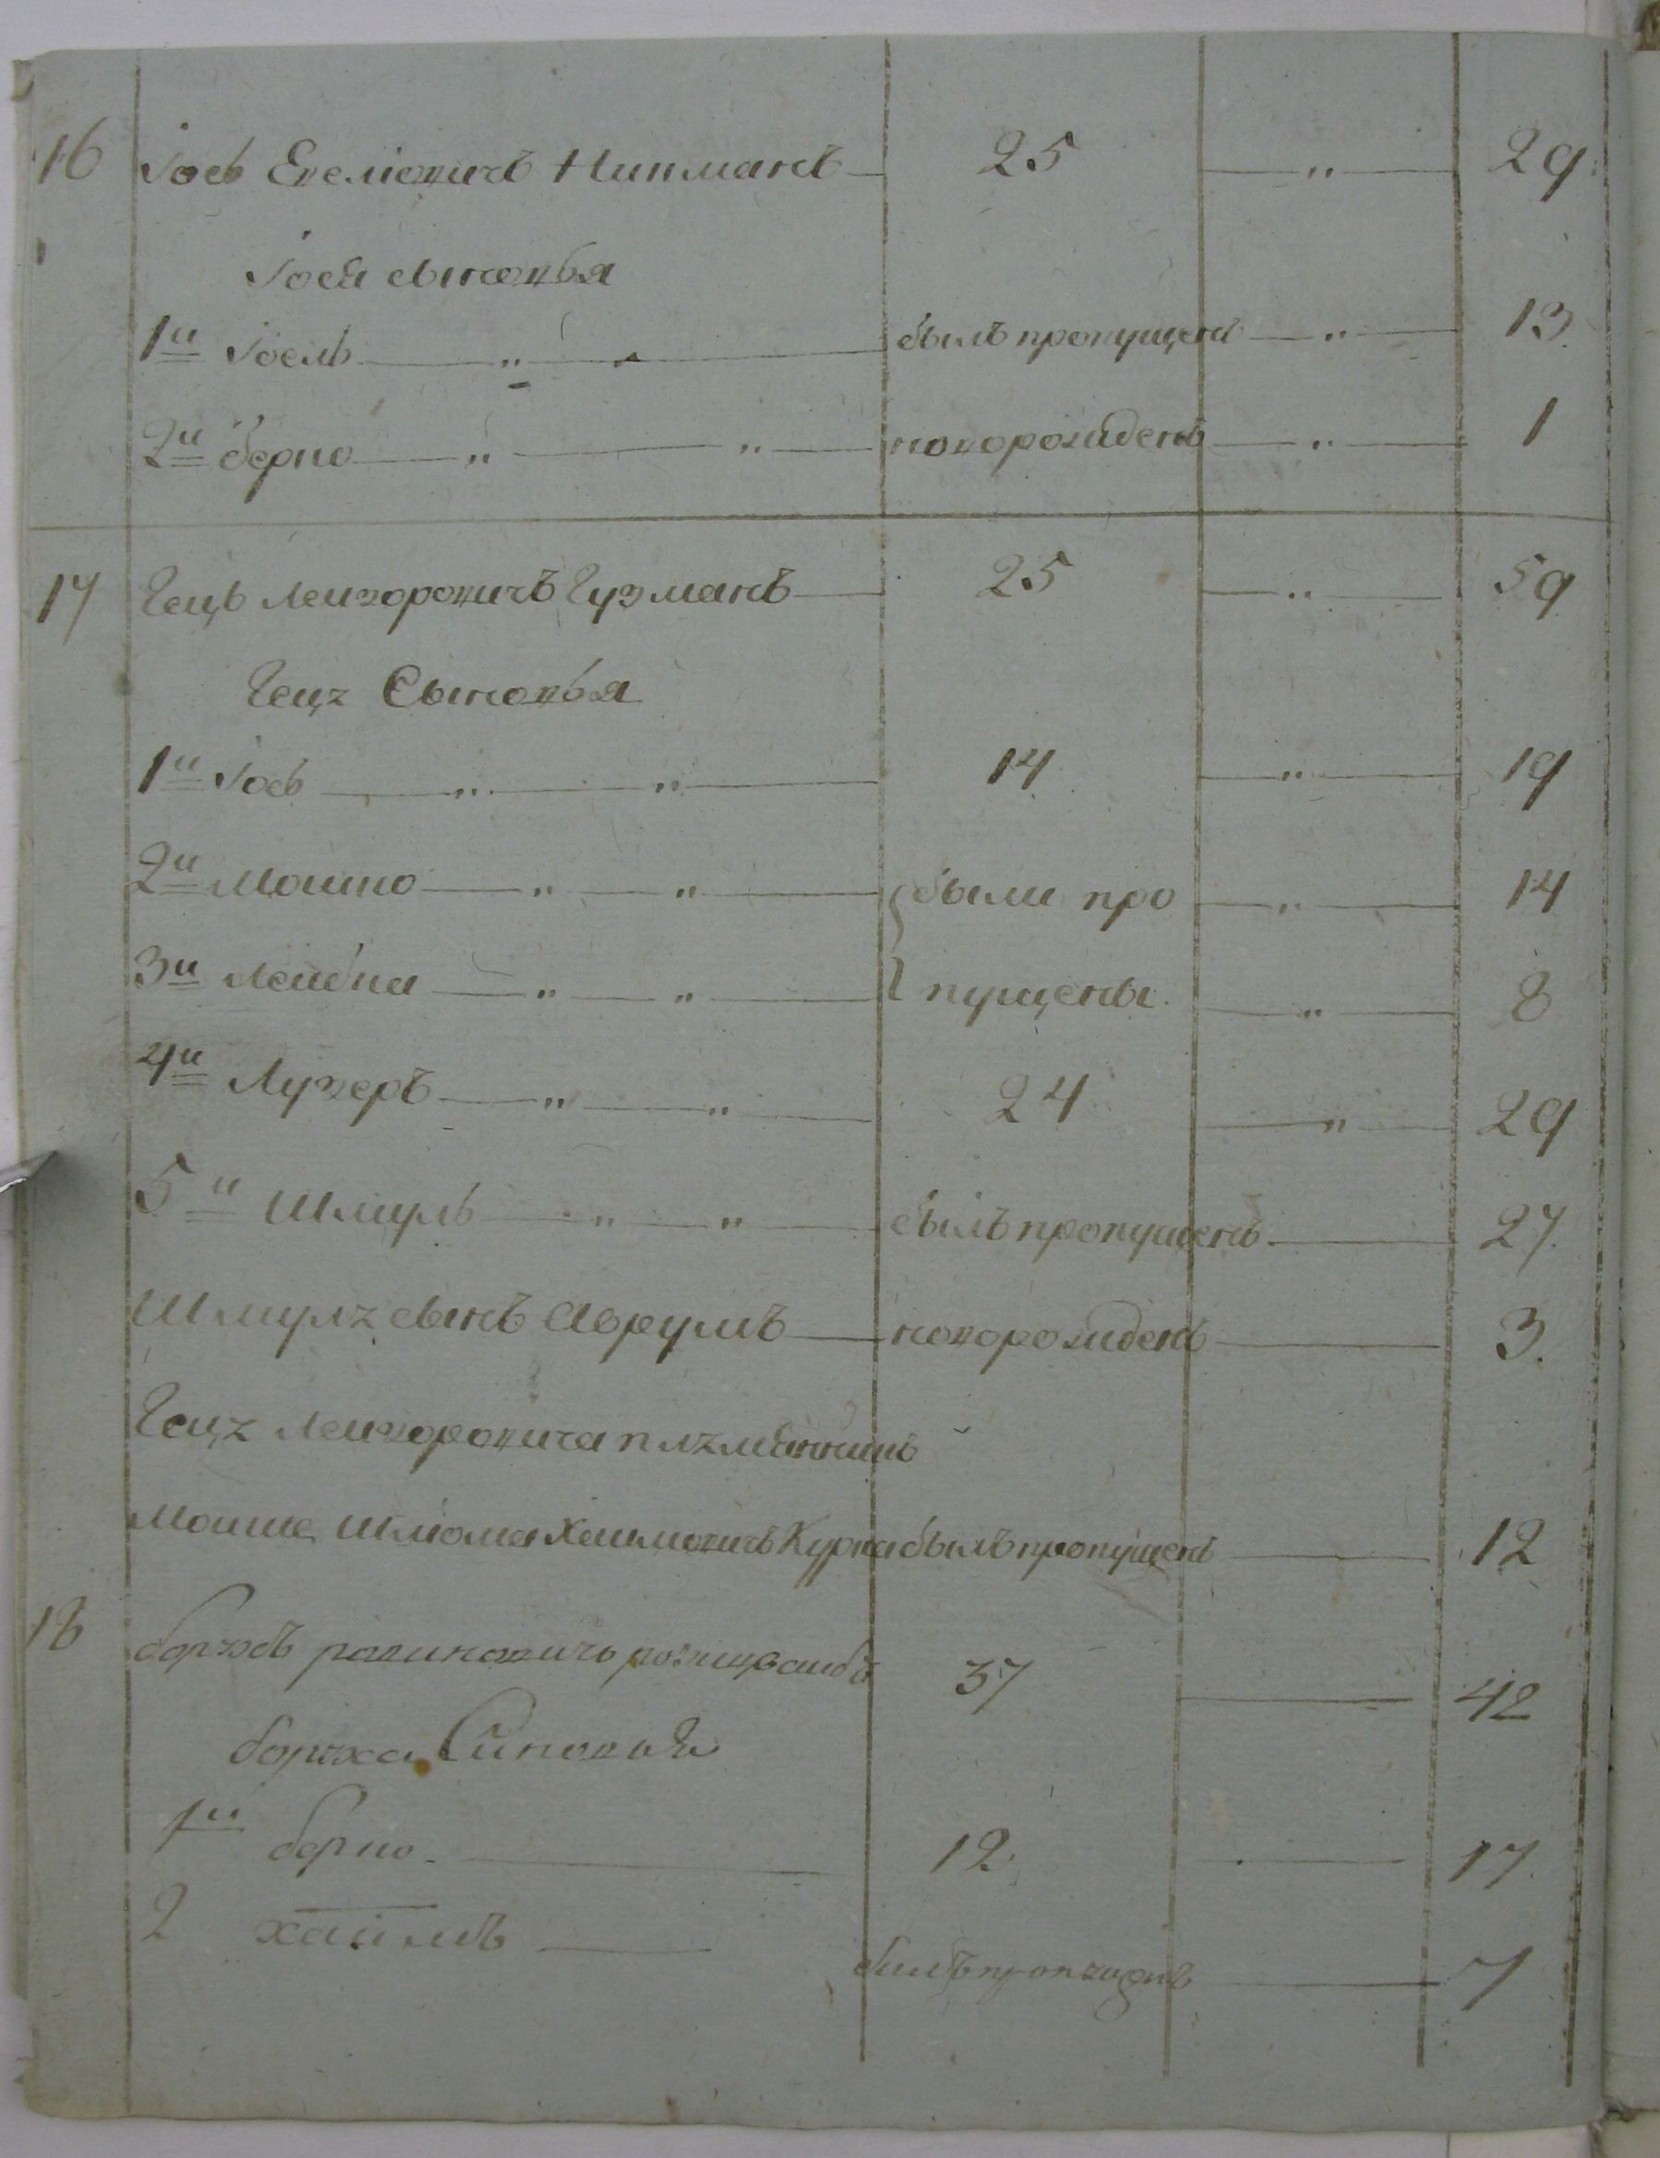 16 Іось Екеліовичъ Нипманъ 25 — " — 29
Іося сыновья
1й Іоель — " — былъ пропущенъ — " — 13
2й берко — " — " — новорожденъ — " — 1
17 Гецъ Лейзоровичъ Гузманъ 25 — " — 59
Гецѣ Сыновья
1й Іось — " — " — 14 — " — 19
2й Мошко — " — " — были про — " — 14
3й Лейбка — " — " — пущены — " — 8
4й Лузеръ — " — " — 24 — " — 29
5й Шмуль — " — " — былъ пропущенъ — 27
Шмулѣ сынъ Аврумъ — новорожденъ — 3
Гецѣ Лейзоровича плѣмянникъ
Мошке Шліома Хаимовичъ Курка былъ пропущенъ — 12
18 борхъ рабиновичъ 37 — 42
борха Синовья
1й берко — 12 — 17
2 хаимъ — билъ — 7